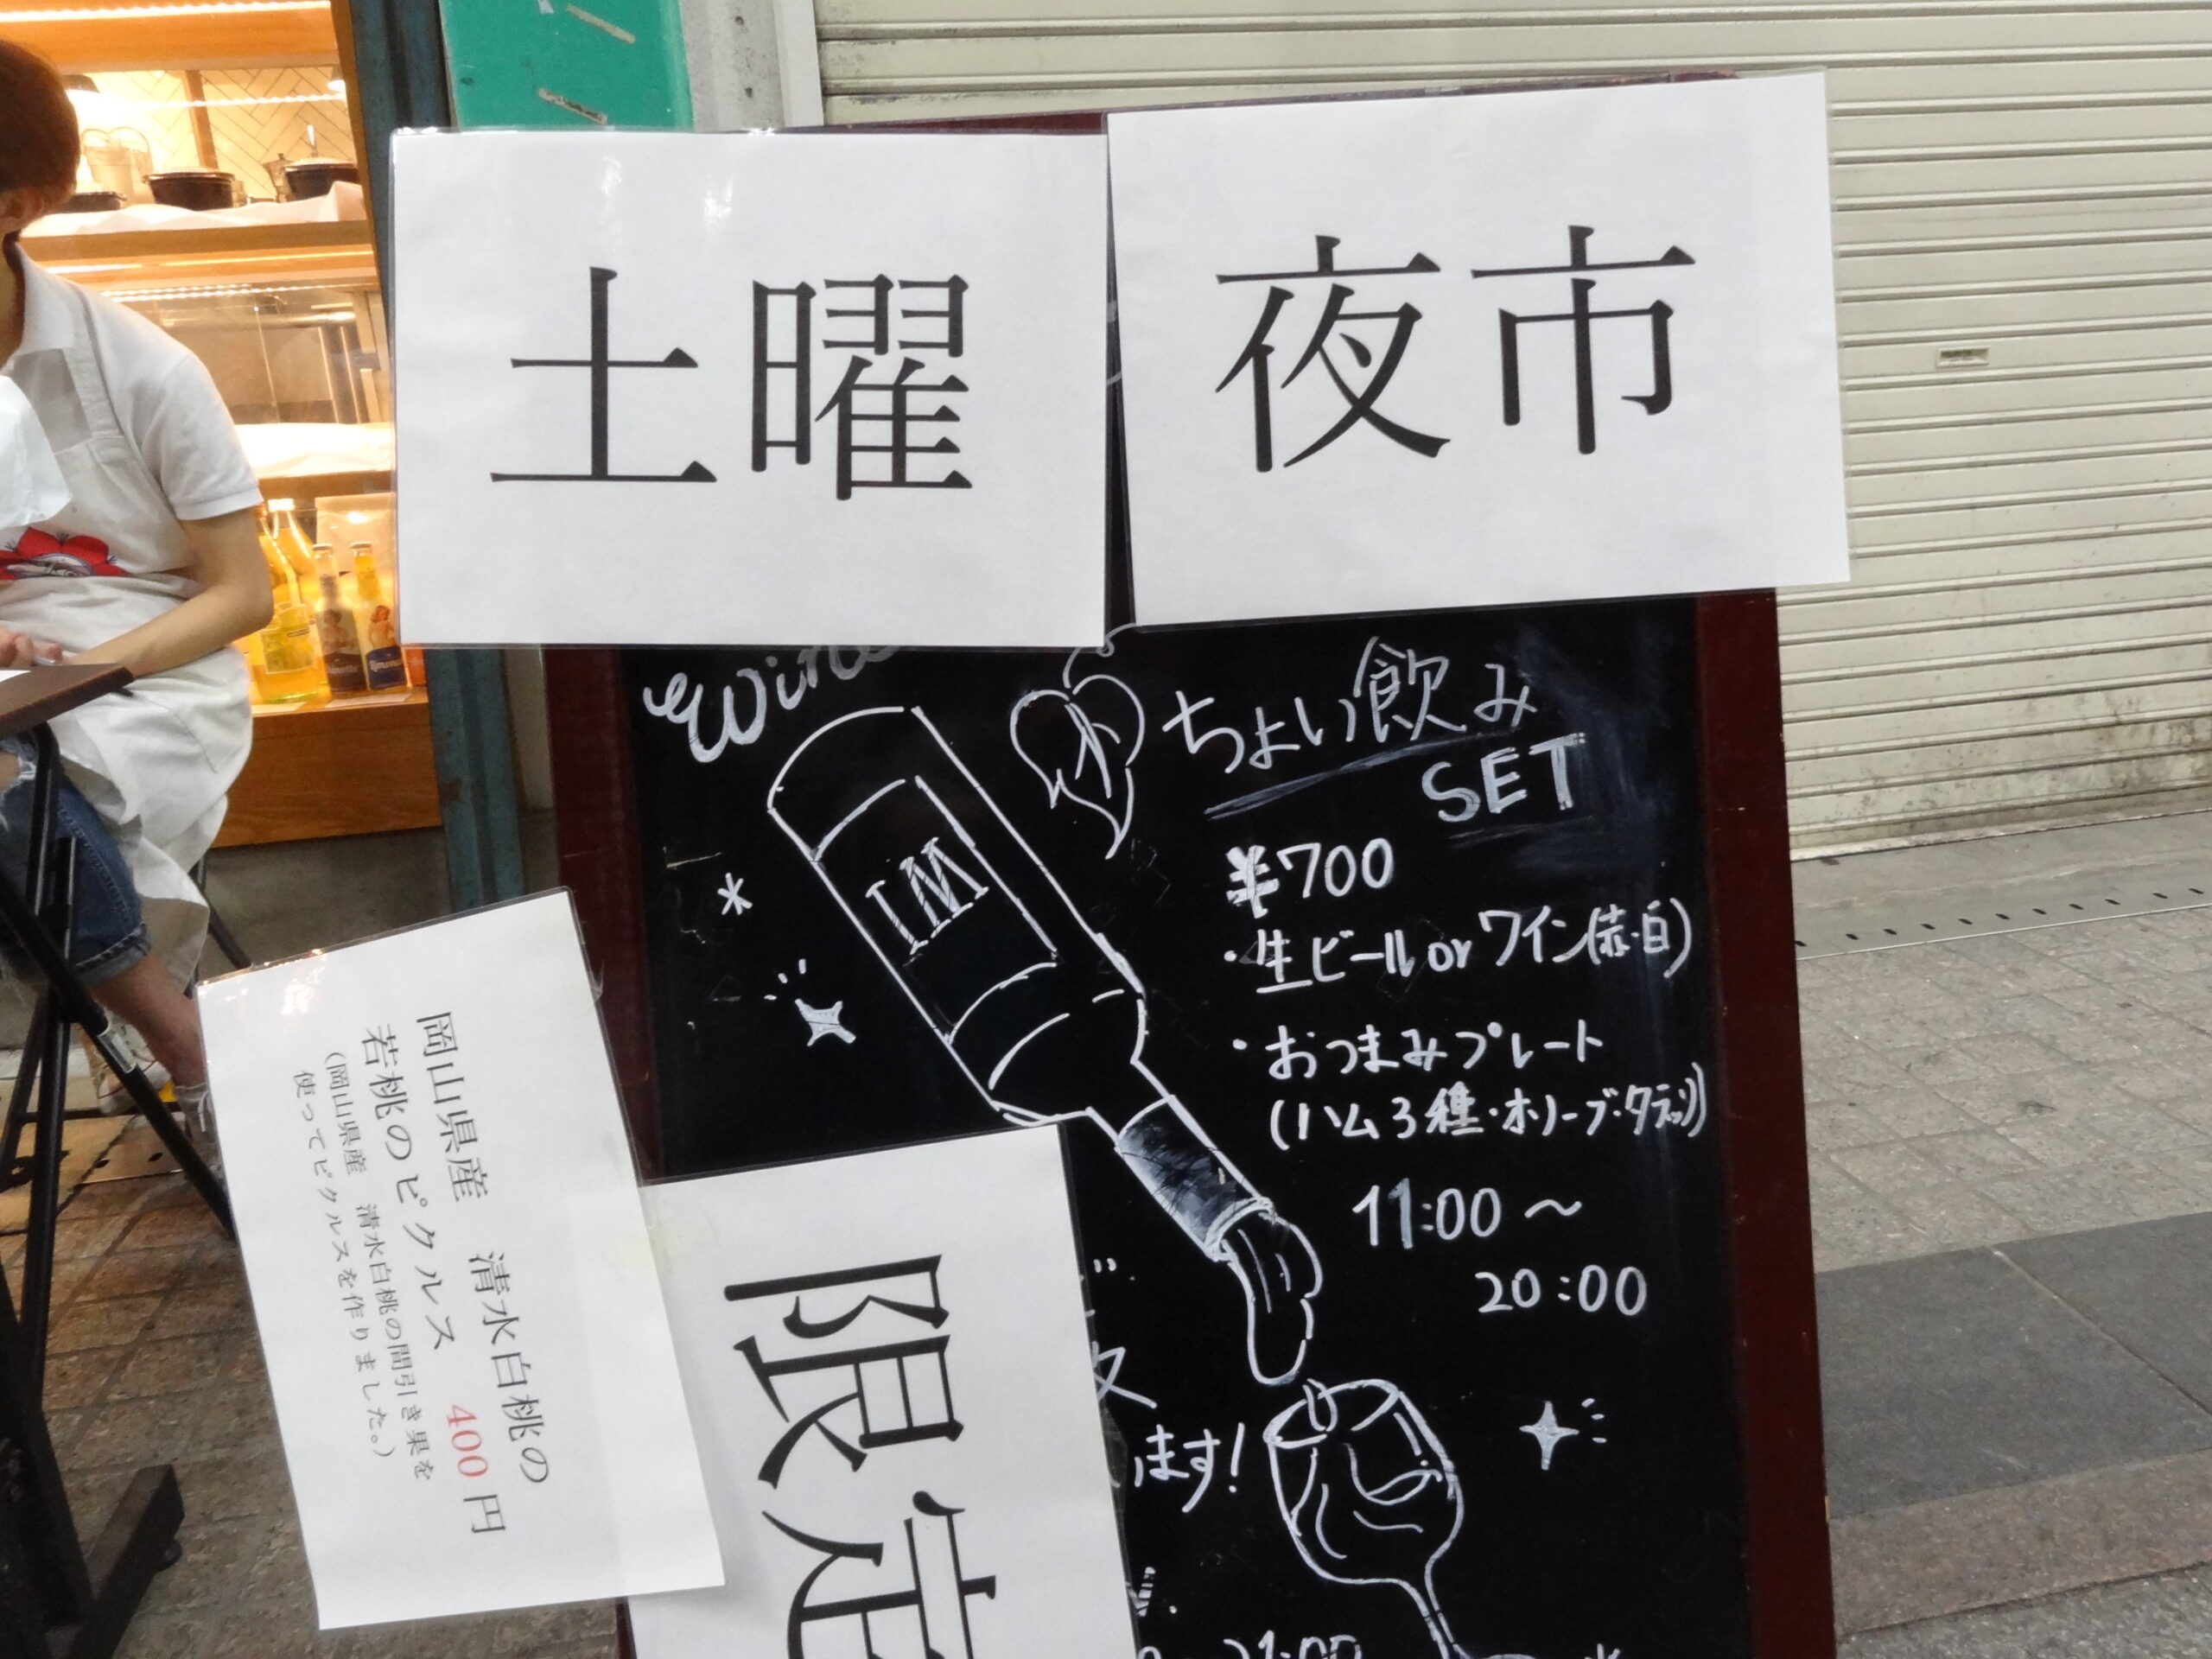 土曜
夜市
Wine
ちょい飲み
SET
¥700
・生ビールorワイン(赤・白)
・おつまみプレート
(ハム3種・オリーブ・クラッカー)
11:00～
20:00
LM
岡山県産　清水白桃の
若桃のピクルス　400円
(岡山県産　清水白桃の間引き果を
使ってピクルスを作りました。)
限定
ます!
21:00